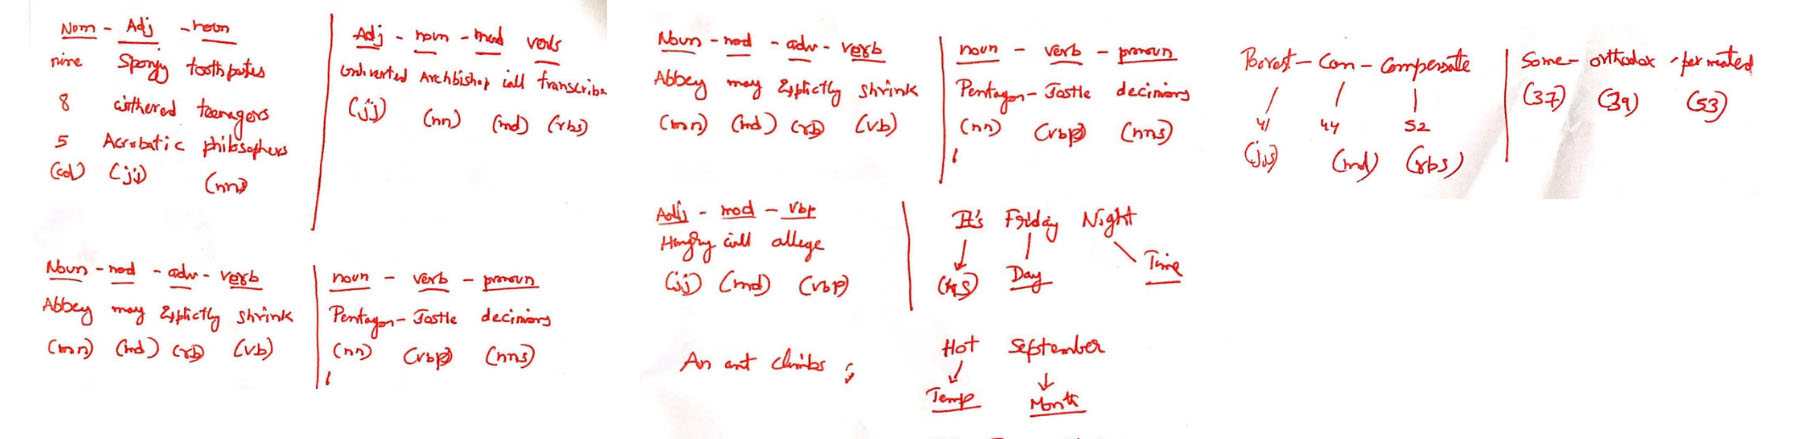 Nom - Adj - noun
nine Spongy toothpastes
8 withered teenagers
5 Acrobatic philosophers
(cd) (jj) (nns)
Adj - noun - mod verbs
Archbishop will transcribe
(jj) (nn) (md) (rbs)
Noun - mod - adv - verb
Abbey may Explictly shrink
(nn) (md) (rb) (vb)
noun - verb - pronoun
Pentagon - Jostle decisions
(nn) (vbp) (nns)
Noun - mod - adv - verb
Abbey may Explictly shrink
(nn) (md) (rb) (vb)
noun - verb - pronoun
Pentagon - Jostle decisions
(nn) (vbp) (nns)
Adj - mod - Vbp
Hungry will allege
(jj) (md) (vbp)
It's Friday Night
Day Time
An ant climbs ;
Hot September
Temp Month
- Can - Compensate
41 44 52
(jjs) (md) (rbs)
Some - orthodox - permeated
(37) (39) (53)